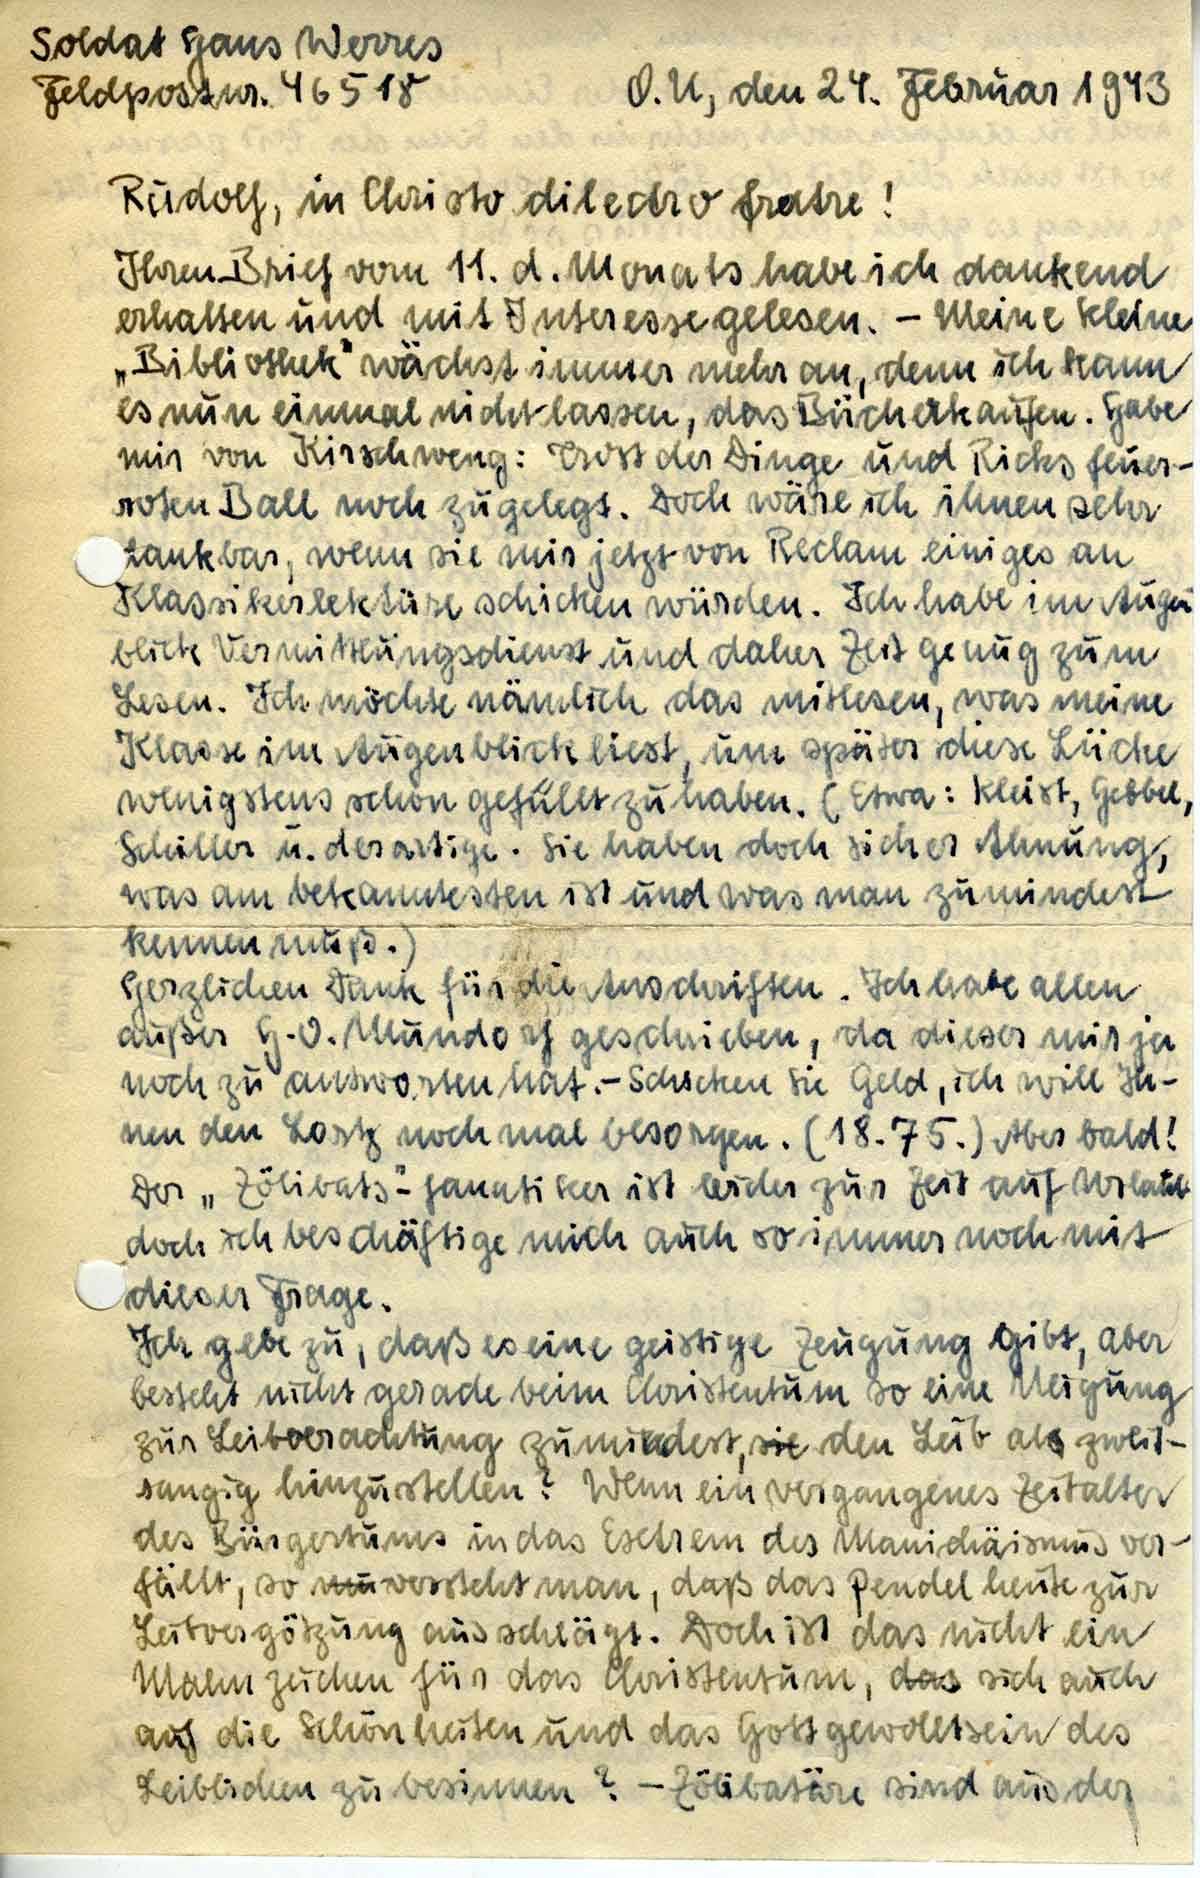 Soldat Hans Werres
Feldpostnr. 46518 O.U, den 24. Februar 1943
Rudolf, in Christo dilectro fratre!
Ihren Brief vom 11. d. Monats habe ich dankend
erhalten und mit Interesse gelesen. – Meine kleine
„Bibliothek" wächst immer mehr an, denn ich kann
es nun einmal nicht lassen, das Bücherkaufen. Habe
mir von Kirschweng: Trost der Dinge und Ricks feuer-
roten Ball noch zugelegt. Doch wäre ich ihnen sehr
dankbar, wenn sie mir jetzt von Reclam einiges an
Klassikerlektüre schicken würden. Ich habe im Augen
blick Vermittlungsdienst und daher Zeit genug zum
Lesen. Ich möchte nämlich das mitlesen, was meine
Klasse im Augenblick liest, um später diese Lücke
wenigstens schon gefüllt zu haben. (Etwa: Kleist, Hebbel,
Schiller u. derartige. Sie haben doch sicher Ahnung,
was am bekanntesten ist und was man zumindest
kennen muß.)
Herzlichen Dank für die Anschriften. Ich habe allen
außer H.-O. Mundorf geschrieben, da dieser mir ja
noch zu antworten hat. – Schicken Sie Geld, ich will Ih-
nen den Lortz nochmal besorgen. (18.75.) Aber bald!
Der „Zölibats"-fanatiker ist leider zur Zeit auf Urlaub
doch ich beschäftige mich auch so immer noch mit
dieser Frage.
Ich gebe zu, daß es eine geistige Zeugung gibt, aber
besteht nicht gerade beim Christentum so eine Neigung
zur Leibverachtung zumindest, sie den Leib als zweit-
rangig hinzustellen? Wenn ein vergangenes Zeitalter
des Bürgertums in das Extrem des Manichäismus ver-
fällt, so versteht man, daß das Pendel heute zur
Leibvergötzung ausschlägt. Doch ist das nicht ein
Mahnzeichen für das Christentum, das sich auch
auf die Schönheiten und das Gottgewolltsein des
Leiblichen zu besinnen? – Zölibatäre sind aus der